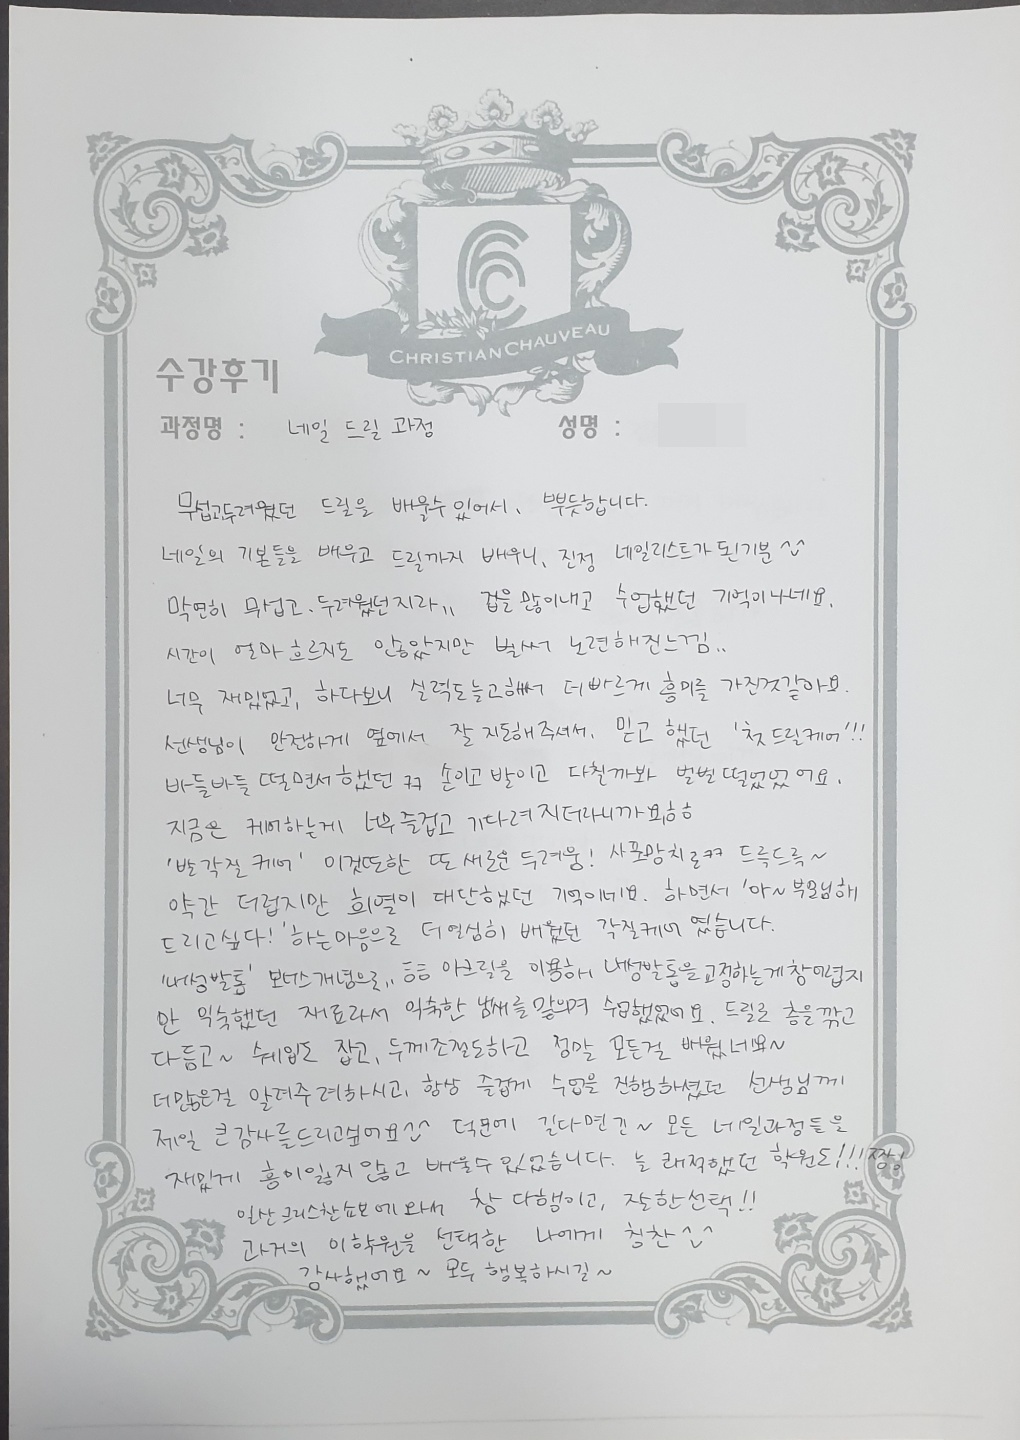 CHRISTIAN CHAUVEAU
수강후기
과정명 : 네일 드릴 과정 성명 :
무섭고두려웠던 드릴을 배울수있어서, 뿌듯합니다.
네일의 기본들을 배우고 드릴까지 배우니, 진정 네일리스트가 된기분^^
막연히 무섭고.두려웠던지라,, 겁을많이내고 수업했던 기억이나네요.
시간이 얼마흐르지도 안핞았지만 벌써 노련해진느낌..
너무 재밌었고, 하다보니 실력도늘고해서 더빠르게 흥미를 가진것같아요.
선생님이 안전하게 옆에서 잘지도해주셔서, 믿고 했던 '첫드릴케어'!!
바들바들 떨면서했던 ㅋㅋ 손이고 발이고 다칠까봐 벌벌떨었었어요.
지금은 케어하는게 너무즐겁고 기다려지더라니까요ㅎㅎ
'발각질케어' 이것또한 또새로운두려움! 사포망치로ㅋㅋ 드륵드륵~
약간 더럽지만 희열이 대단했던 기억이네요. 하면서 '아~부모님해
드리고싶다!'하는마음으로 더열심히 배웠던 각질케어 였습니다.
'내성발톱' 보너스개념으로,, 아크릴을 이용해 내성발톱을교정하는게창의럽지
만 익숙했던 재료라서 익숙한 냄새를맡으며 수업했었어요. 드릴로 층을깎고
다듬고~ 쉐입도 잡고, 두께조절도하고 정말 모든걸 배웠네요~
더많은걸 알려주려하시고, 항상 즐겁게 수업을 진행하셨던 선생님께
제일 큰감사를드리고싶어요^^ 덕분에 길다면긴~ 모든 네일과정들을
재밌게 흥미잃지않고 배울수있었습니다. 늘 쾌적했던 학원도!!!짱!
일산크리스챤쇼보에와서 참 다행이고, 잘한선택!!
과거의 이학원을 선택한 나에게 칭찬^^
감사했어요~ 모두행복하시길~